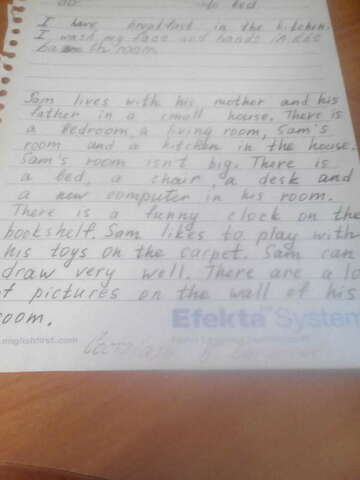 to bed
I have breakfast in the kitchen.
I wash my face and hands in
room
Sam lives with his mother and his
father in a small house. There is
a bedroom, a living room, Sam's
room and a kitchen in the house.
Sam's room isn't big. There is
a bed, a chair, a desk and
a new computer in his room.
There is a funny clock on the
bookshelf. Sam likes to play with
his toys on the carpet. Sam can
draw very well. There are a lo
f pictures on the wall of his
room.
Efekta System
englishfirst.com